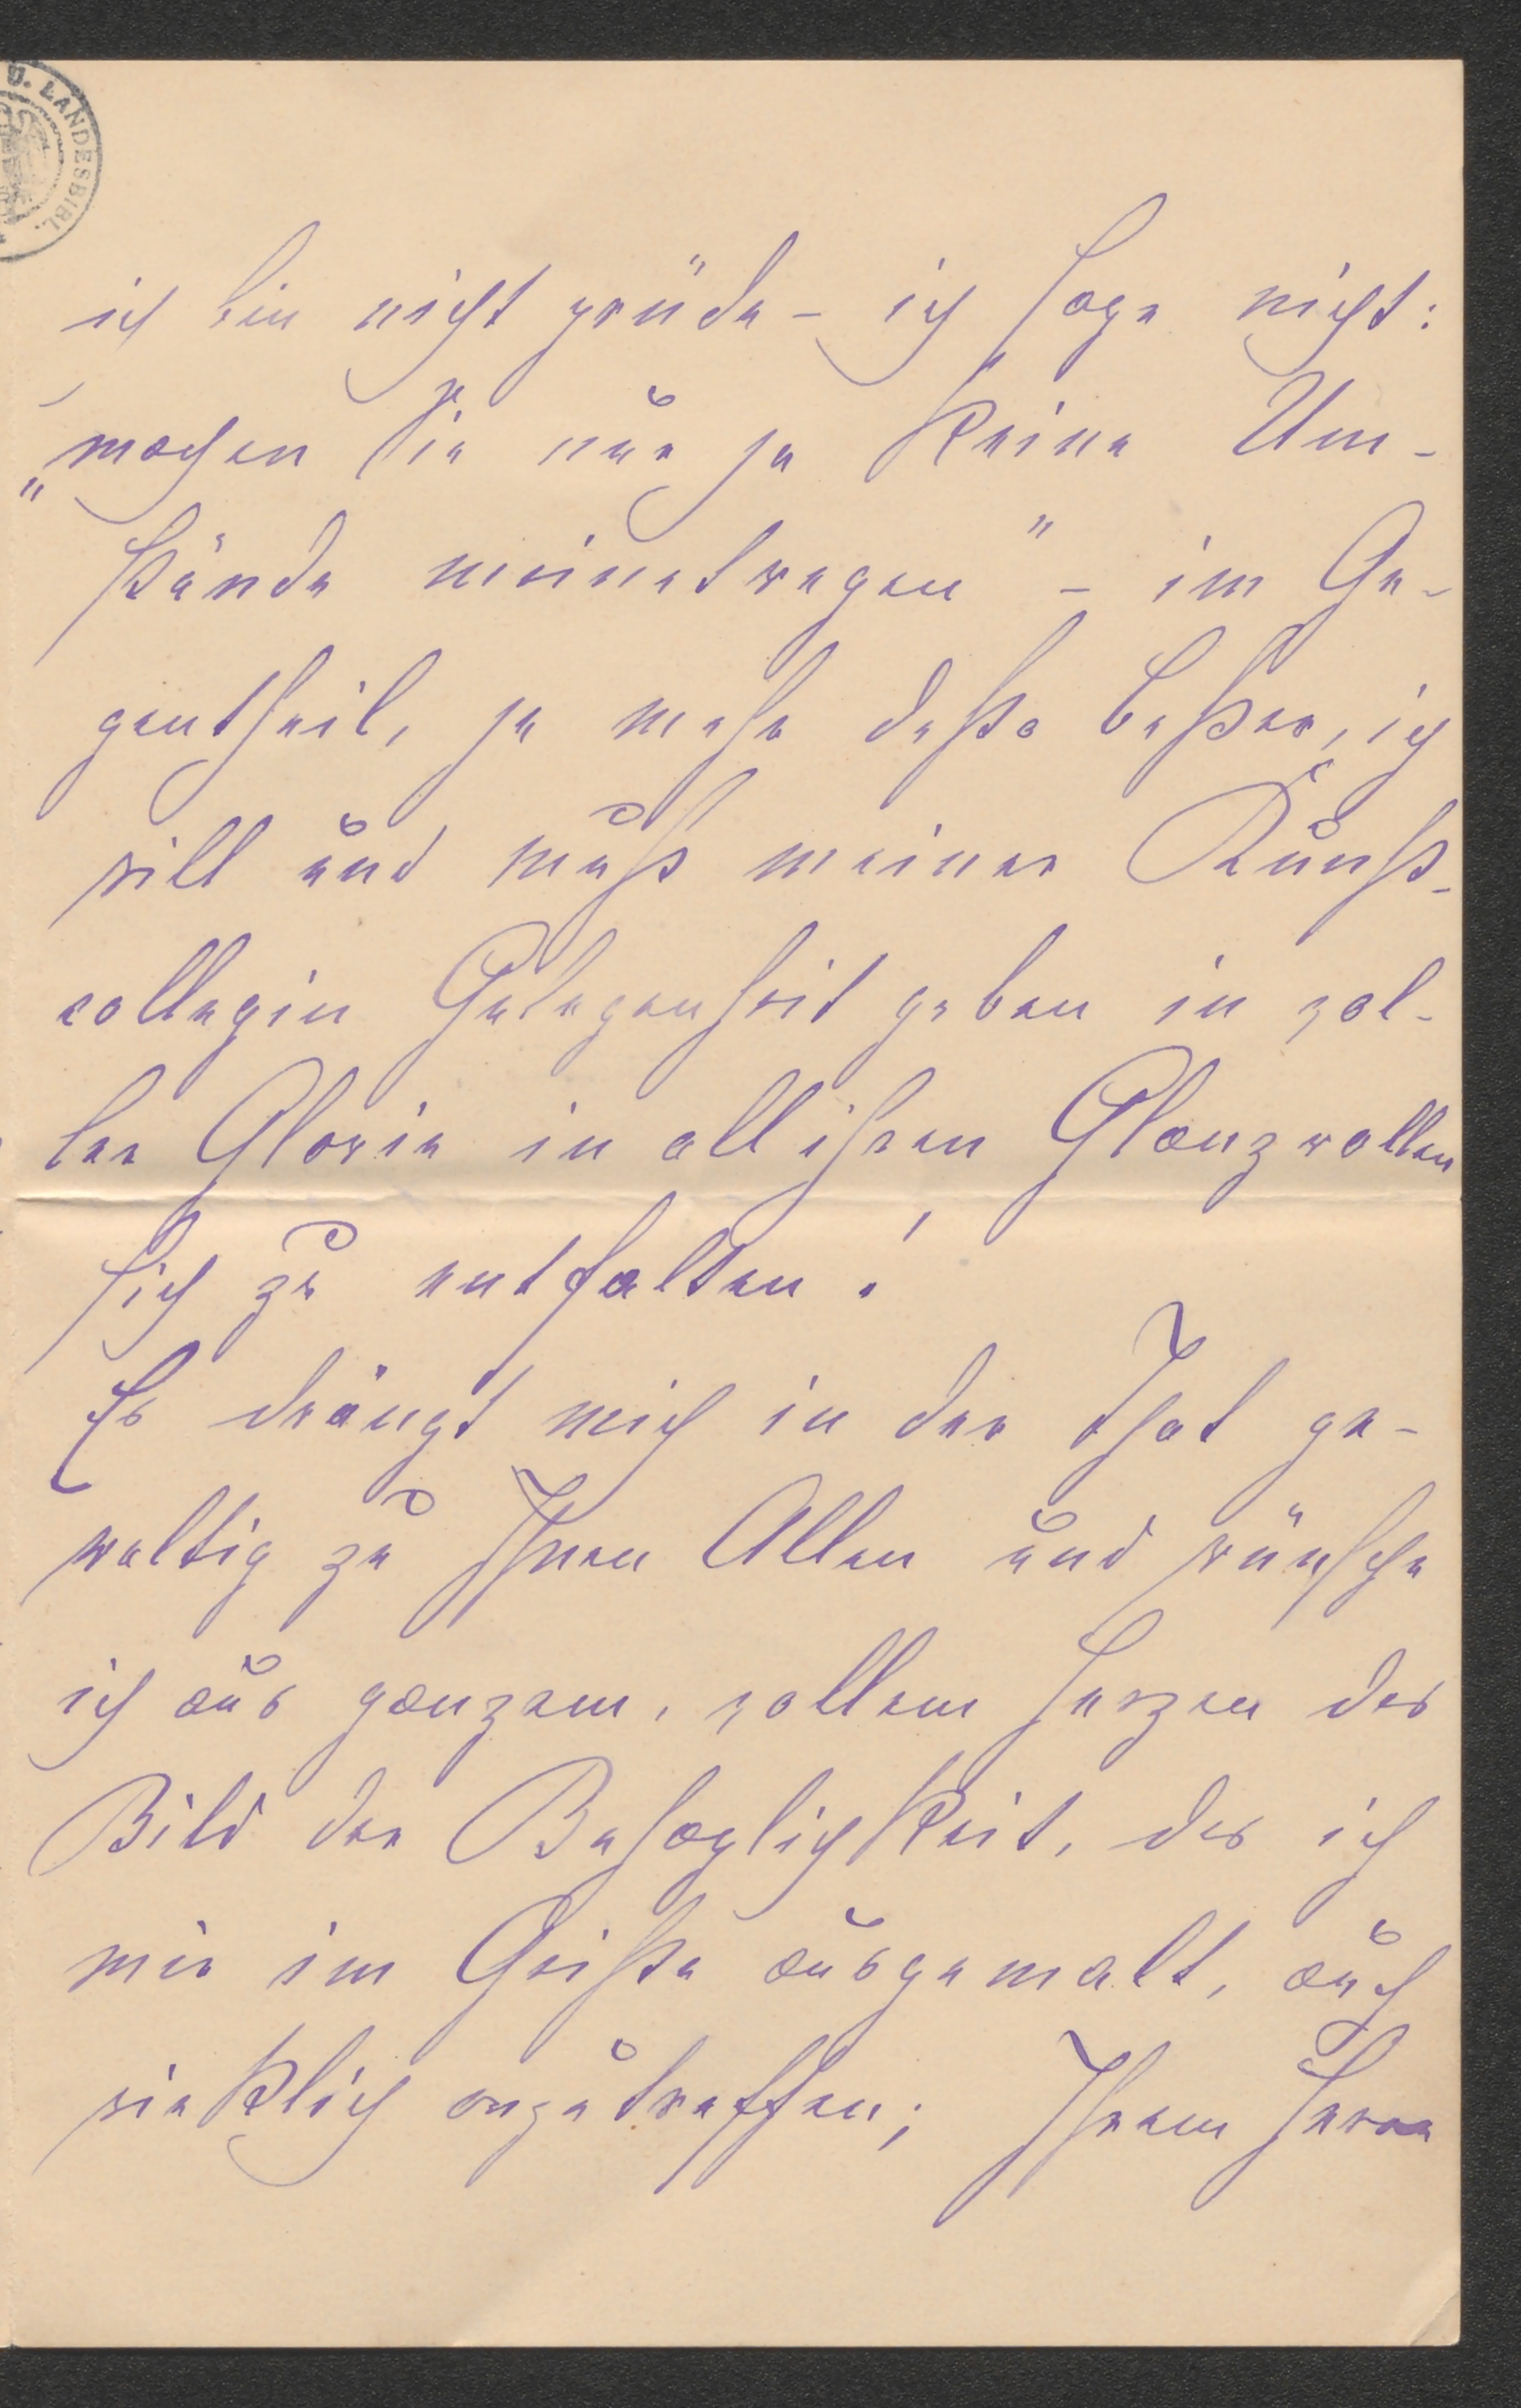 U. LANDESBIBL.
ich bin nicht prüde – ich sage nicht:
„machen Sie nur ja keine Um-
stände meinetwegen" – im Ge-
gentheil, je mehr desto beßer, ich
will und muß meiner Kunst-
collegin Gelegenheit geben in vol-
ler Glorie in all ihren Glanzrollen
sich zu entfalten!
Es drängt mich in der That ge-
waltig zu Ihnen Allen und wünsche
ich aus ganzem, vollem Herzen das
Bild der Behaglichkeit, das ich
mir im Geiste ausgemalt, auch
wirklich anzutreffen; Ihrem Herrn